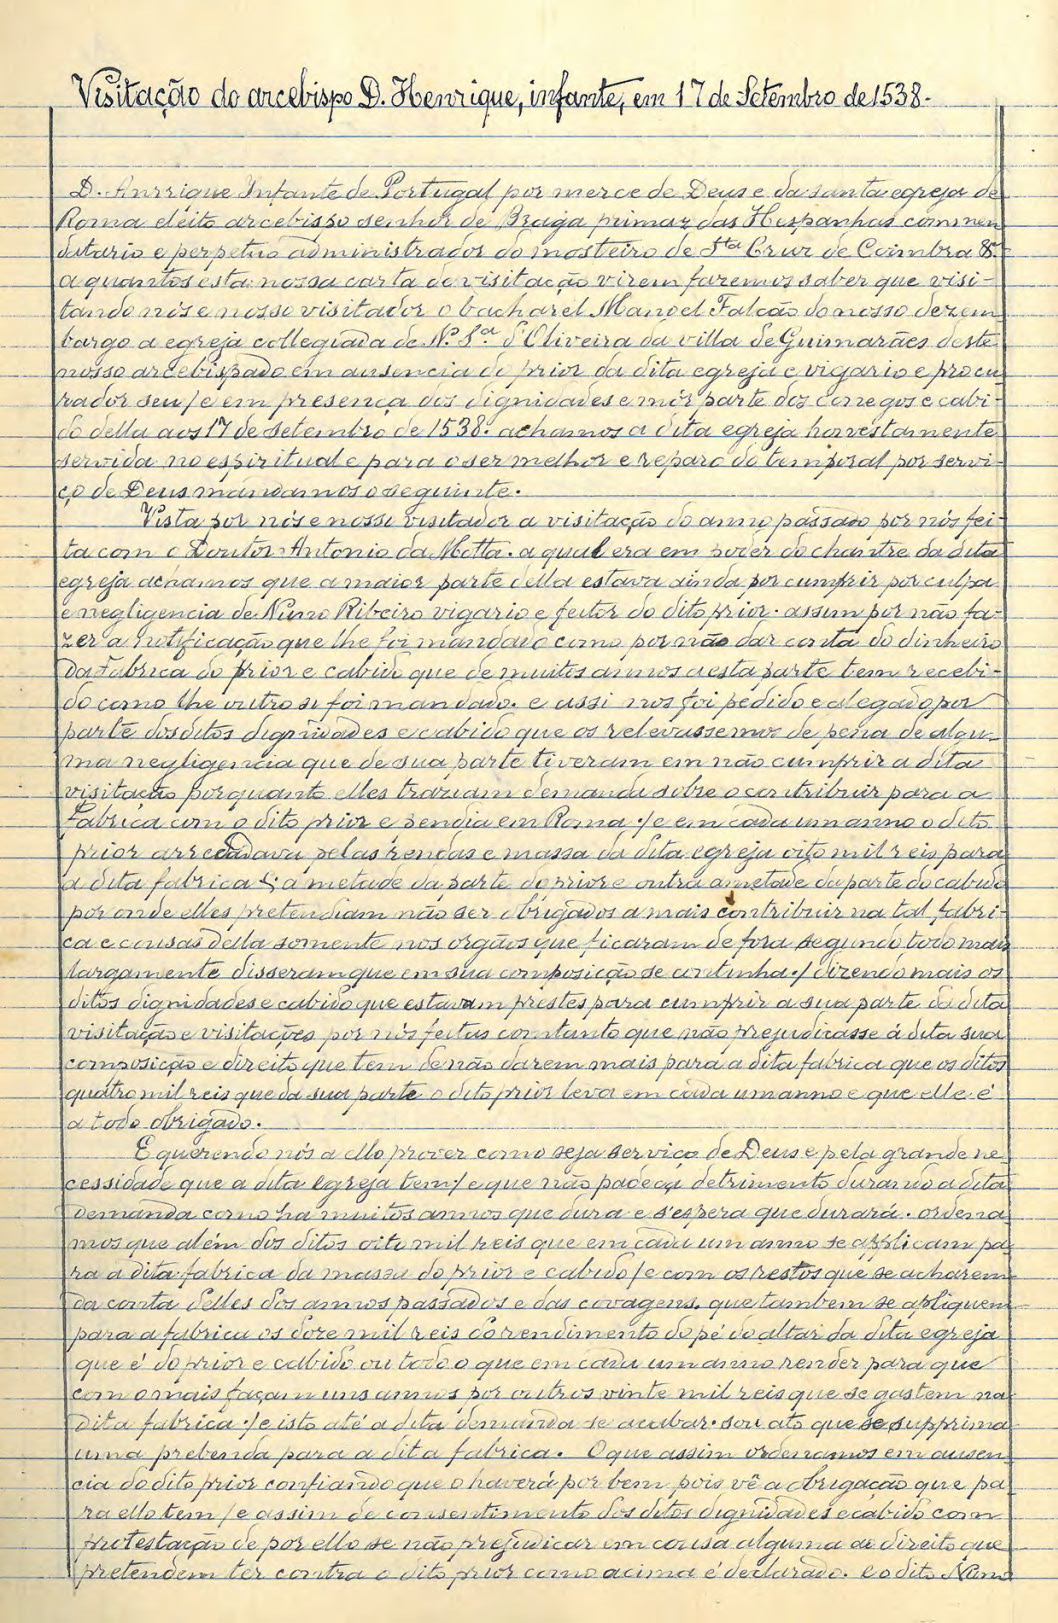 Visitação do arcebispo D. Henrique, infante, em 17 de Setembro de 1538.
D. Anrrique Infante de Portugal por merce de Deus e da santa egreja de
Roma eleito arcebispo senhor de Braga primaz das Hespanhas commen
datario e perpetuo administrador do mosteiro de Sta Cruz de Coimbra &.
a quantos esta nossa carta de visitação virem fazemos saber que visi-
tando nós e nosso visitador o bacharel Manoel Falcão do nosso dezem
bargo a egreja collegiada de N.ª S.ª d'Oliveira da villa de Guimarães deste
nosso arcebispado em ausencia do prior da dita egreja e vigario e procu
rador seu / e em presença dos dignidades e mór parte dos conegos e cabi-
do della aos 17 de setembro de 1538. achamos a dita egreja honestamente
servida no espiritual e para o ser melhor e reparo do temporal por servi-
ço de Deus mandamos o seguinte.
Vista por nós e nosso visitador a visitação do anno passado por nós fei-
ta com o Doutor Antonio da Motta. a qual era em poder do chantre da dita
egreja achamos que a maior parte della estava ainda por cumprir por culpa
e negligencia de Nuno Ribeiro vigario e feitor do dito prior. assim por não fa-
zer a notificação que lhe foi mandado como por não dar conta do dinheiro
da fabrica do prior e cabido que de muitos annos a esta parte tem recebi-
do como lhe outro si foi mandado. e assi nos foi pedido e alegado por
parte dos ditos dignidades e cabido que os relevassemos de pena de algu-
ma negligencia que de sua parte tiveram em não cumprir a dita
visitação porquanto elles traziam demanda sobre o contribuir para a
fabrica com o dito prior e pendia em Roma. / e em cada um anno o dito
prior arrecadava pelas rendas e massa da dita egreja oito mil reis para
a dita fabrica s; a metade da parte do prior e outra ametade da parte do cabido
por onde elles pretendiam não ser obrigados a mais contribuir na tal fabri-
ca e cousas della somente nos orgãos que ficaram de fora segundo todo mais
largamente disseram que em sua composição se continha. / dizendo mais os
ditos dignidades e cabido que estavam prestes para cumprir a sua parte da dita
visitação e visitações por nós feitas comtanto que não prejudicasse á dita sua
composição e direito que tem de não darem mais para a dita fabrica que os ditos
quatro mil reis que da sua parte o dito prior leva em cada um anno e que elle é
a todo obrigado.
E querendo nós a ello prover como seja serviço de Deus e pela grande ne
cessidade que a dita egreja tem / e que não padeça detrimento durando a dita
demanda como ha muitos annos que dura e s'espera que durará. ordena
mos que além dos ditos oito mil reis que em cada um anno se applicam pa
ra a dita fabrica da massa do prior e cabido / e com os restos que se acharem
da conta delles dos annos passados e das covagens. que tambem se apliquem
para a fabrica os doze mil reis do rendimento do pé do altar da dita egreja
que é do prior e cabido ou todo o que em cada um anno render para que
com o mais façam uns annos por outros vinte mil reis que se gastem na
dita fabrica. / e isto até a dita demanda se acabar. sou ato que se supprima
uma prebenda para a dita fabrica. O que assim ordenamos em ausen
cia do dito prior confiando que o haverá por bem pois vê a obrigação que pa
ra ello tem / e assim de consentimento dos ditos dignidades e cabido com
protestação de por ello se não prejudicar em cousa alguma ao direito que
pretendem ter contra o dito prior como acima é declarado. e o dito Nuno